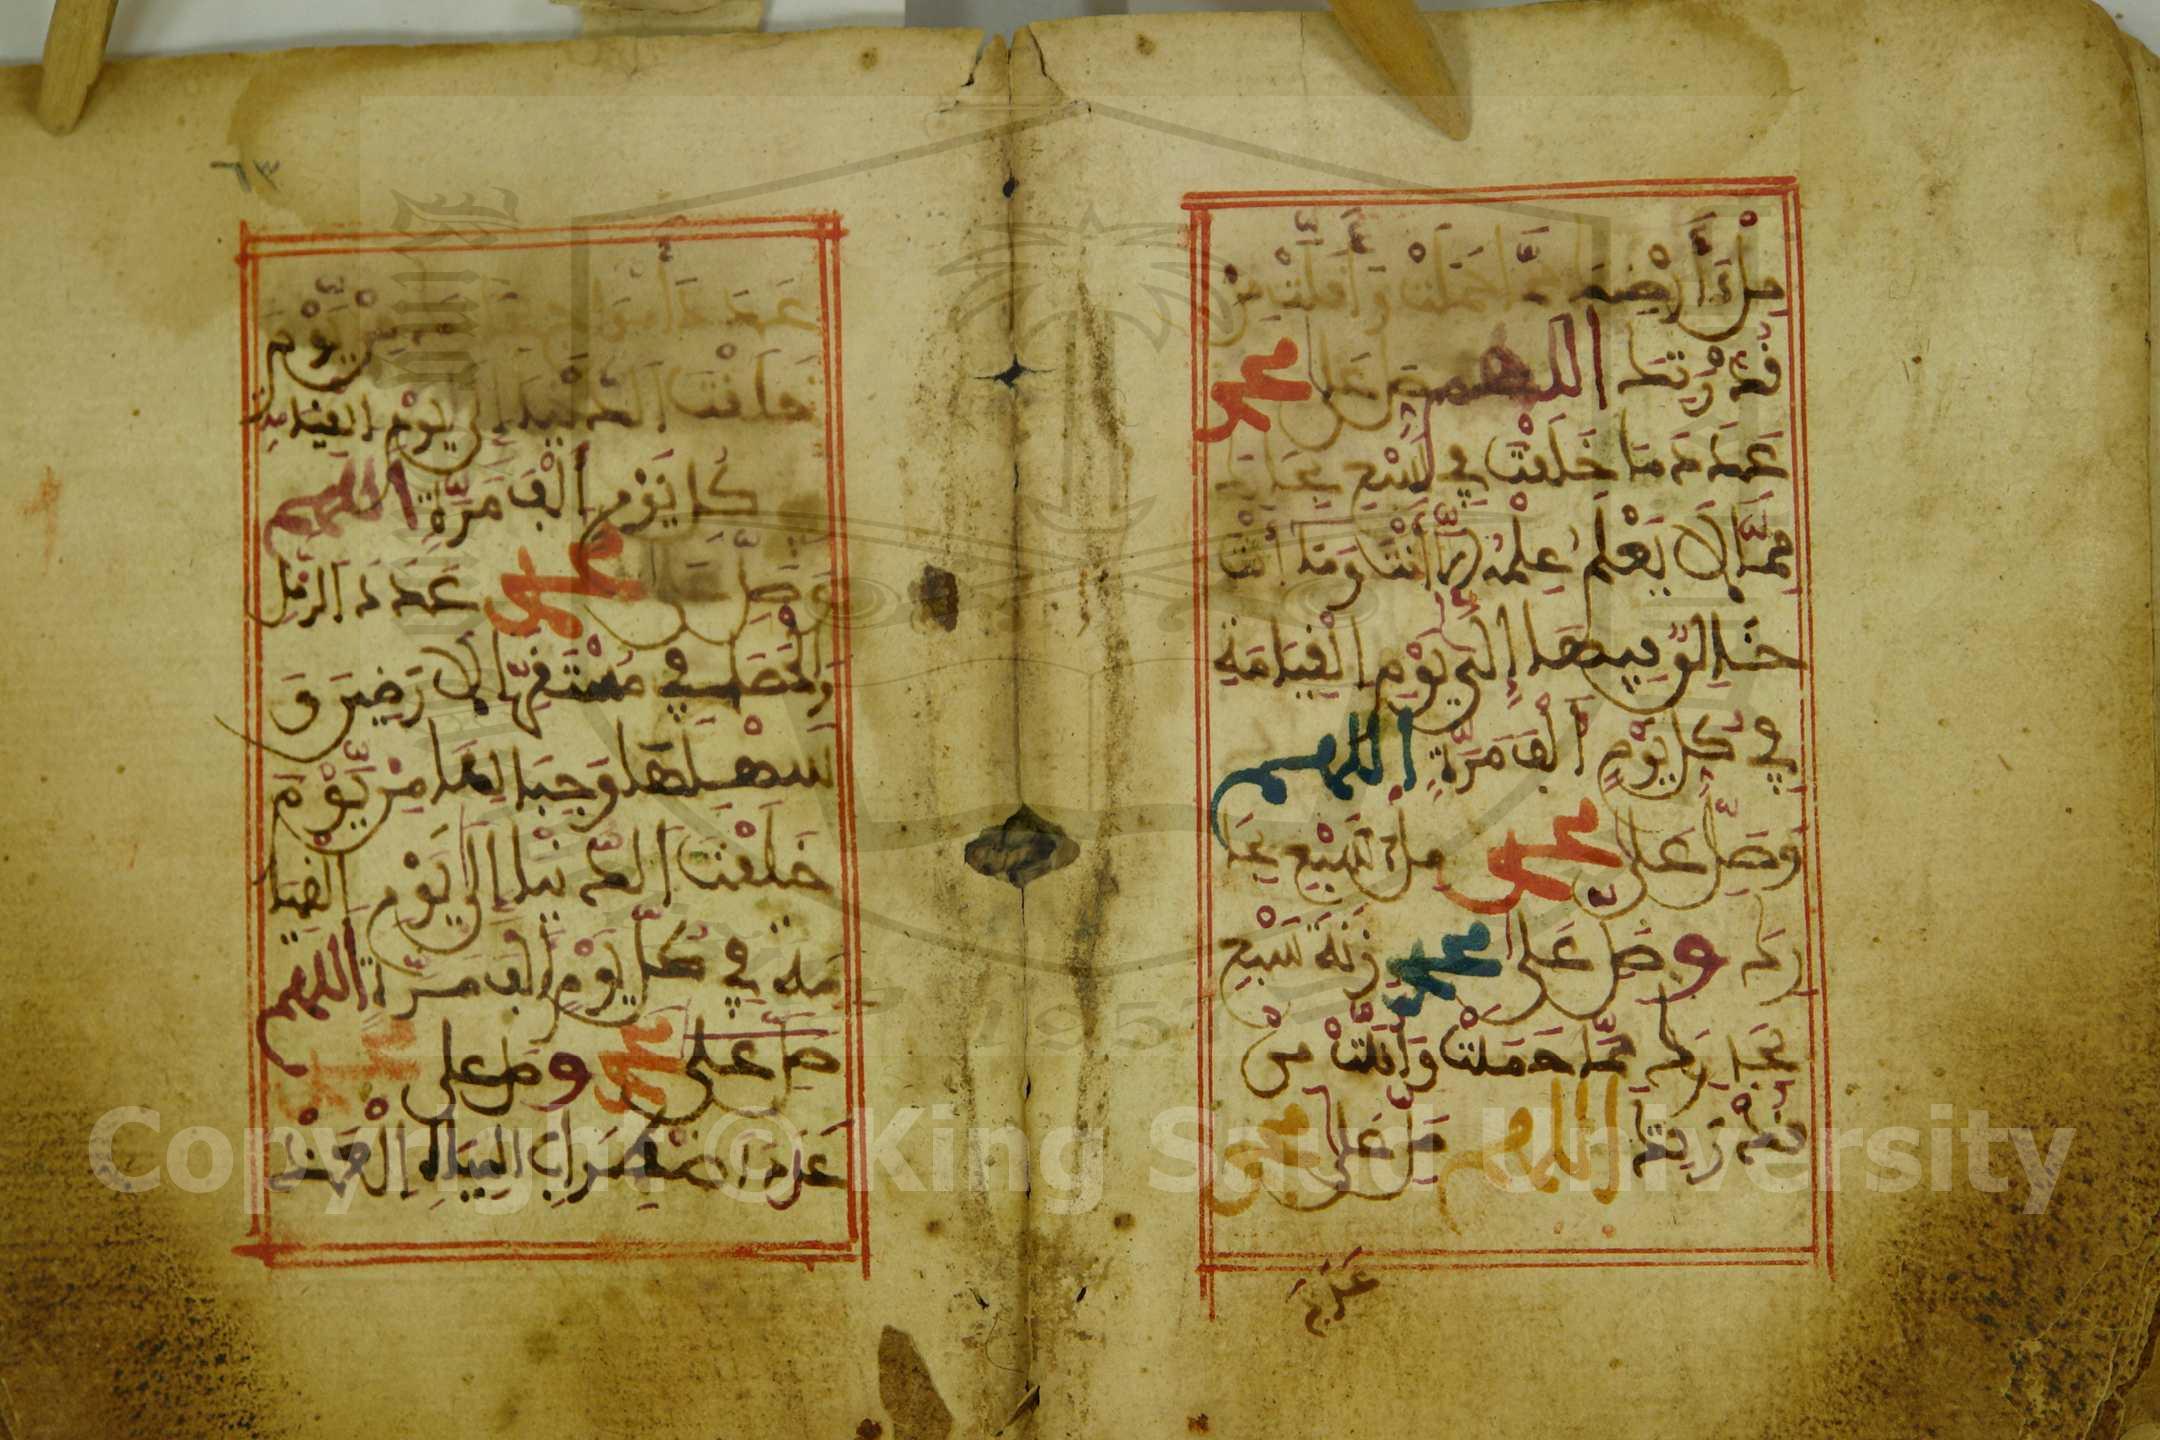 ملء أرضك مما حملت وأقلت من
قدرتك اللهم صل على محمد
عدد ما خلقت في سبع بحارك
مما لا يعلم علمه إلا أنت وما أنت
خالقه فيها إلى يوم القيامة
في كل يوم ألف مرة اللهم
وصل على محمد ملء سبع بحا
رك وصل على محمد زنة سبع
بحارك مما حملت وأقلت من
قدرتك اللهم صل على محمد
عدد
٦٣
عدد أمواج بحارك من يوم
خلقت الدنيا إلى يوم القيامة
كل يوم ألف مرة اللهم
وصل على محمد عدد الرمل
والحصى في مستقر الأرضين و
سهلها وجبالها من يوم
خلقت الدنيا إلى يوم القيا
مة في كل يوم ألف مرة اللهم
صل على محمد وصل على محمد
عدد اضطراب المياه العذبة
Copyright © King Saud University
1957